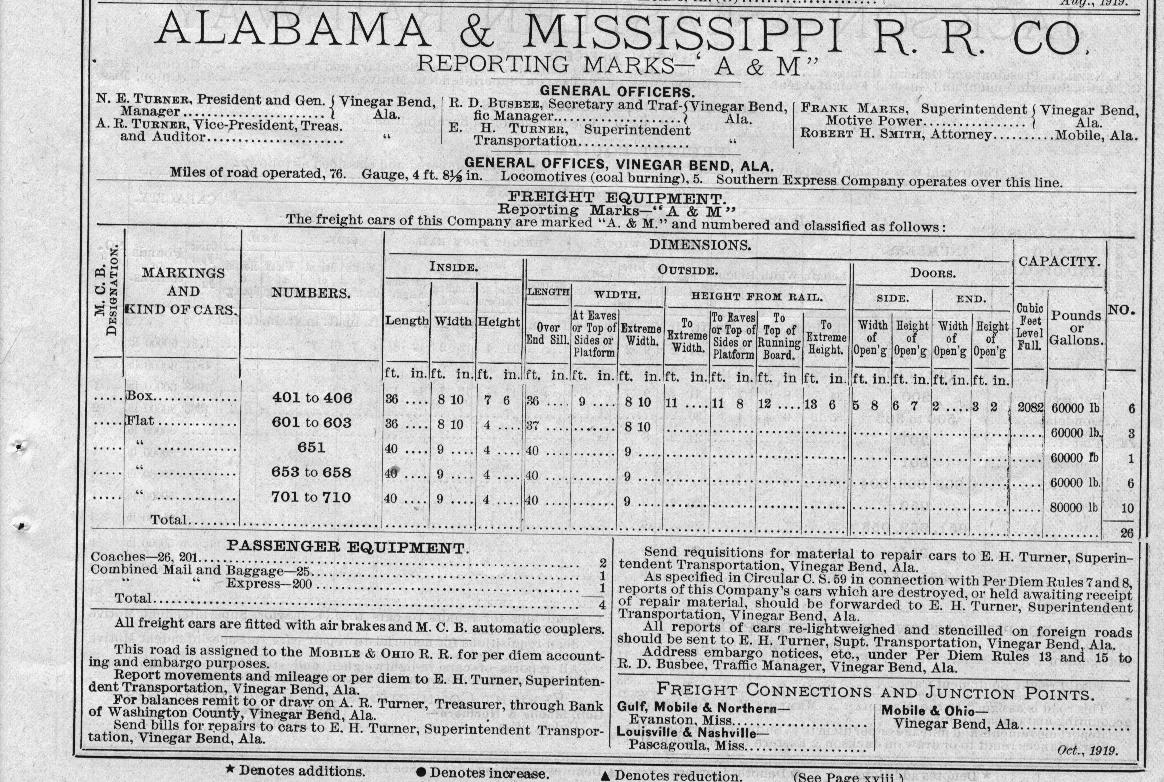 Aug., 1919.
ALABAMA & MISSISSIPPI R. R. CO.
REPORTING MARKS—"A & M"
GENERAL OFFICERS.
N. E. TURNER, President and Gen. Manager.................... Vinegar Bend, Ala.
A. R. TURNER, Vice-President, Treas. and Auditor.................... "
R. D. BUSBEE, Secretary and Traffic Manager.................... Vinegar Bend, Ala.
E. H. TURNER, Superintendent Transportation.................... "
FRANK MARKS, Superintendent Motive Power.................... Vinegar Bend, Ala.
ROBERT H. SMITH, Attorney.........Mobile, Ala.
GENERAL OFFICES, VINEGAR BEND, ALA.
Miles of road operated, 76. Gauge, 4 ft. 8½ in. Locomotives (coal burning), 5. Southern Express Company operates over this line.
FREIGHT EQUIPMENT.
Reporting Marks—"A & M"
The freight cars of this Company are marked "A. & M." and numbered and classified as follows:
M. C. B. DESIGNATION.
MARKINGS AND KIND OF CARS.
NUMBERS.
DIMENSIONS.
INSIDE. OUTSIDE. DOORS.
CAPACITY.
NO.
LENGTH WIDTH. HEIGHT FROM RAIL. SIDE. END.
Length Width Height
Over End Sill.
At Eaves or Top of Sides or Platform
Extreme Width.
To Extreme Width.
To Eaves or Top of Sides or Platform
To Top of Running Board.
To Extreme Height.
Width of Open'g
Height of Open'g
Width of Open'g
Height of Open'g
Cubic Feet Level Full.
Pounds or Gallons.
ft. in. ft. in. ft. in. ft. in. ft. in. ft. in. ft. in. ft. in. ft. in. ft. in. ft. in. ft. in. ft. in. ft. in.
.....Box............ 401 to 406 36 .... 8 10 7 6 36 .... 9 .... 8 10 11 .... 11 8 12 .... 13 6 5 8 6 7 2 .... 3 2 2082 60000 lb 6
.....Flat ............ 601 to 603 36 .... 8 10 4 .... 37 .... 8 10 60000 lb. 3
..... " ............ 651 40 .... 9 .... 4 .... 40 .... 9 .... 60000 lb 1
..... " ............ 653 to 658 40 .... 9 .... 4 .... 40 .... 9 .... 60000 lb 6
..... " ............ 701 to 710 40 .... 9 .... 4 .... 40 .... 9 .... 80000 lb 10
Total........ 26
PASSENGER EQUIPMENT.
Coaches—26, 201.................... 2
Combined Mail and Baggage—25.................... 1
" " Express—200.................... 1
Total.................... 4
All freight cars are fitted with air brakes and M. C. B. automatic couplers.
This road is assigned to the MOBILE & OHIO R. R. for per diem account-
ing and embargo purposes.
Report movements and mileage or per diem to E. H. Turner, Superinten-
dent Transportation, Vinegar Bend, Ala.
For balances remit to or draw on A. R. Turner, Treasurer, through Bank
of Washington County, Vinegar Bend, Ala.
Send bills for repairs to cars to E. H. Turner, Superintendent Transpor-
tation, Vinegar Bend, Ala.
Send requisitions for material to repair cars to E. H. Turner, Superin-
tendent Transportation, Vinegar Bend, Ala.
As specified in Circular C. S. 59 in connection with Per Diem Rules 7 and 8,
reports of this Company's cars which are destroyed, or held awaiting receipt
of repair material, should be forwarded to E. H. Turner, Superintendent
Transportation, Vinegar Bend, Ala.
All reports of cars re-lightweighed and stencilled on foreign roads
should be sent to E. H. Turner, Supt. Transportation, Vinegar Bend, Ala.
Address embargo notices, etc., under Per Diem Rules 13 and 15 to
R. D. Busbee, Traffic Manager, Vinegar Bend, Ala.
FREIGHT CONNECTIONS AND JUNCTION POINTS.
Gulf, Mobile & Northern—
Evanston, Miss....................
Louisville & Nashville—
Pascagoula, Miss....................
Mobile & Ohio—
Vinegar Bend, Ala....................
Oct., 1919.
★ Denotes additions. ● Denotes increase. ▲ Denotes reduction. (See Page xviii.)